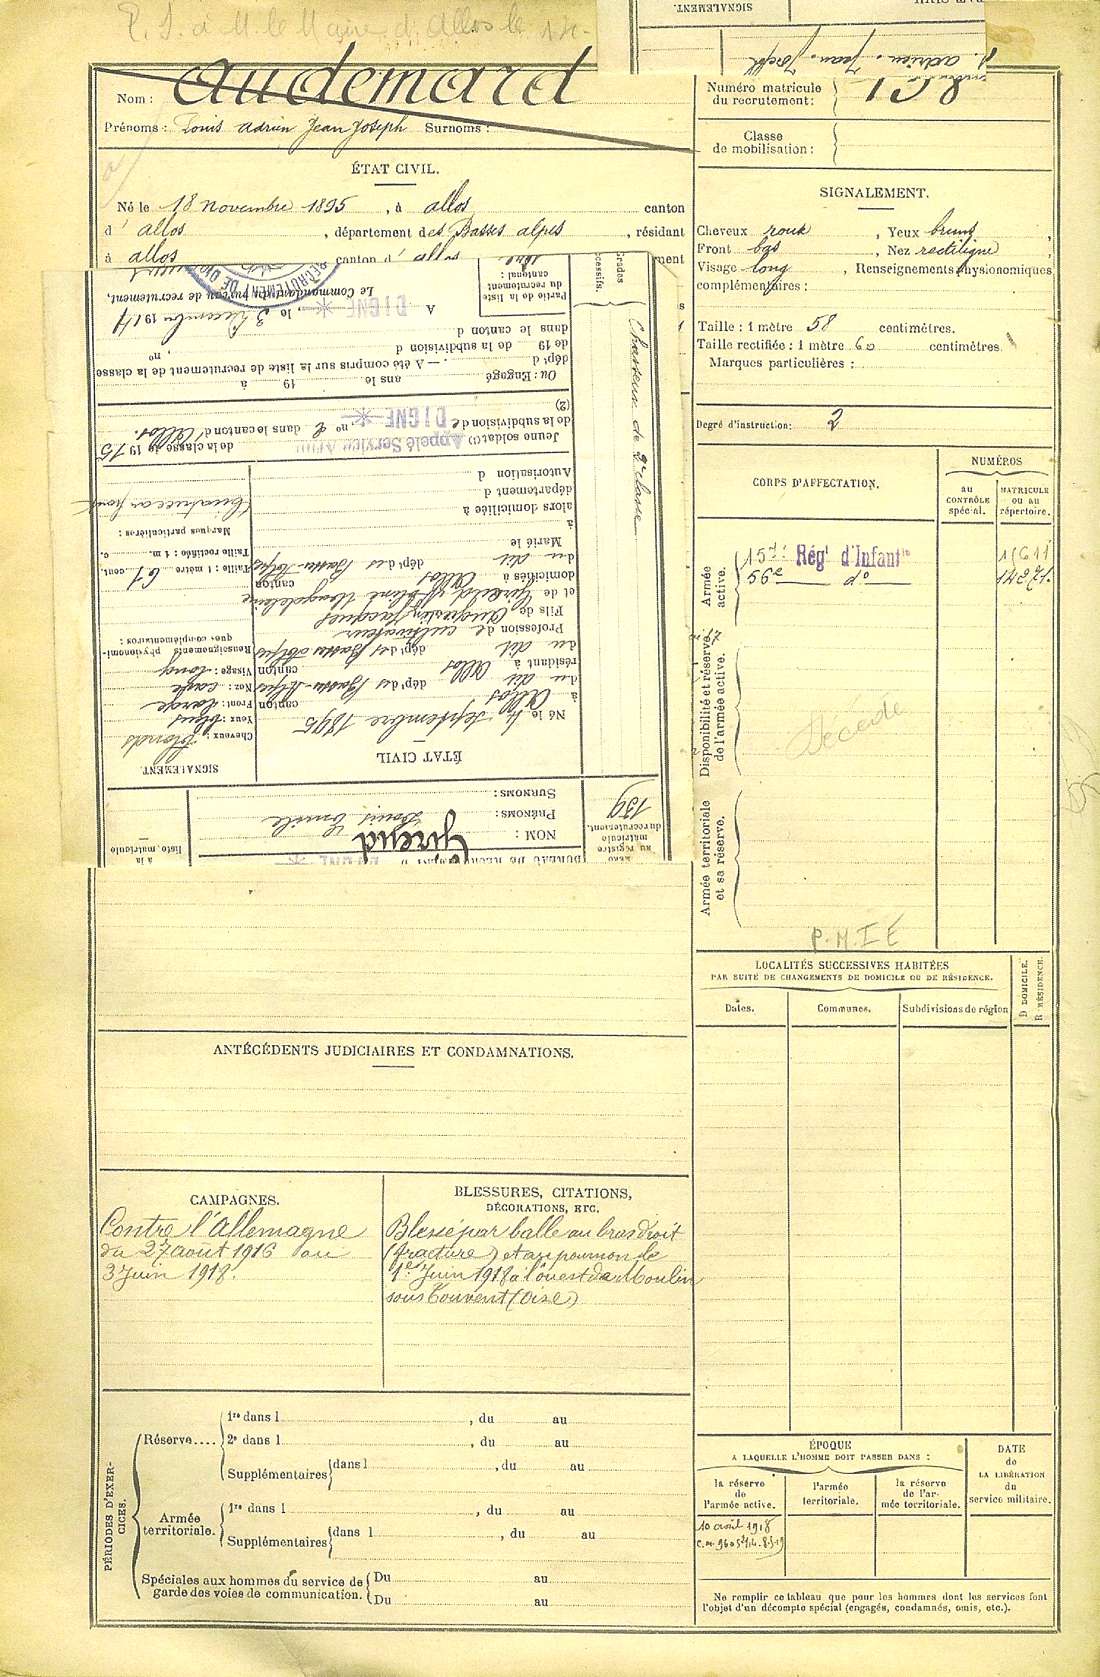 P. S. à M. le Maire d'Allos le
SIGNALEMENT.
adrien Jean Joseph
Nom : Audemard
Prénoms : Louis adrien Jean Joseph Surnoms :
Numéro matricule
du recrutement : 158
Classe
de mobilisation :
ÉTAT CIVIL.
Né le 18 novembre 1895, à allos canton
d'allos, département des Basses alpes, résidant
à allos canton d'allos
SIGNALEMENT.
Cheveux roux, Yeux bruns,
Front bas, Nez rectiligne,
Visage long, Renseignements physionomiques
complémentaires :
Taille : 1 mètre 58 centimètres.
Taille rectifiée : 1 mètre 60 centimètres.
Marques particulières :
Degré d'instruction : 2
CORPS D'AFFECTATION.
NUMÉROS
au
CONTRÔLE
spécial.
MATRICULE
ou au
répertoire.
Armée
active.
157e Régt d'Infantie
56e do 14271.
Disponibilité et réserve
de l'armée active.
Décédé
Armée territoriale
et sa réserve.
P. M. I E
LOCALITÉS SUCCESSIVES HABITÉES
PAR SUITE DE CHANGEMENTS DE DOMICILE OU DE RÉSIDENCE.
Dates.
Communes.
Subdivisions de région
D DOMICILE.
R RÉSIDENCE.
au registre
matricule
du recrutement.
139
NOM : Giraud
PRÉNOMS : Louis Emile
SURNOMS :
à la
liste matricule
ÉTAT CIVIL
Né le 4 septembre 1895
à Allos canton
du dit dépt des Basses-Alpes
résidant à Allos canton
du dit dépt des Basses Alpes
Profession de cultivateur
Fils de Augustin Jacques
et de
domiciliés à Allos canton
du dit dépt des Basses-Alpes
Marié le
à
alors domiciliée à
département d
Autorisation d
SIGNALEMENT
Cheveux : blonds
Yeux : bleus
Front : large
Nez :
Visage : long
Renseignements physionomi-
ques complémentaires :
Taille : 1 mètre 61 cent.
Taille rectifiée : 1 m. c.
Marques particulières :
Cicatrice au front
Jeune soldat (1) Appelé Service Armé de la classe de 1915
de la subdivision de DIGNE no 2 dans le canton d'Allos.
(2)
Ou : Engagé ans le 19 à
dépt d . — A été compris sur la liste de recrutement de la classe
de 19 de la subdivision d , no
dans le canton d
A DIGNE, le 3 décembre 1914
Le Commandant du bureau de recrutement,
RECRUTEMENT DE DIGNE
Partie de la liste
du recrutement
cantonal :
Grades
Chasseur de 2e classe
ANTÉCÉDENTS JUDICIAIRES ET CONDAMNATIONS.
CAMPAGNES.
Contre l'Allemagne
du 27 août 1916 au
3 Juin 1918.
BLESSURES, CITATIONS,
DÉCORATIONS, ETC.
Blessé par balle au bras droit
(fracture) et au poumon le
1er Juin 1918 à l'ouest de Moulin
sous Touvent (Oise)
PÉRIODES D'EXER-
CICES.
Réserve....
1re dans l , du au
2e dans l , du au
Supplémentaires dans l , du au
Armée
territoriale.
1re dans l , du au
Supplémentaires dans l , du au
Spéciales aux hommes du service de
garde des voies de communication.
Du au
Du au
ÉPOQUE
A LAQUELLE L'HOMME DOIT PASSER DANS :
la réserve
de
l'armée active.
l'armée
territoriale.
la réserve
de l'ar-
mée territoriale.
DATE
de
LA LIBÉRATION
du
service militaire.
10 avril 1918
Ne remplir ce tableau que pour les hommes dont les services font
l'objet d'un décompte spécial (engagés, condamnés, omis, etc.).